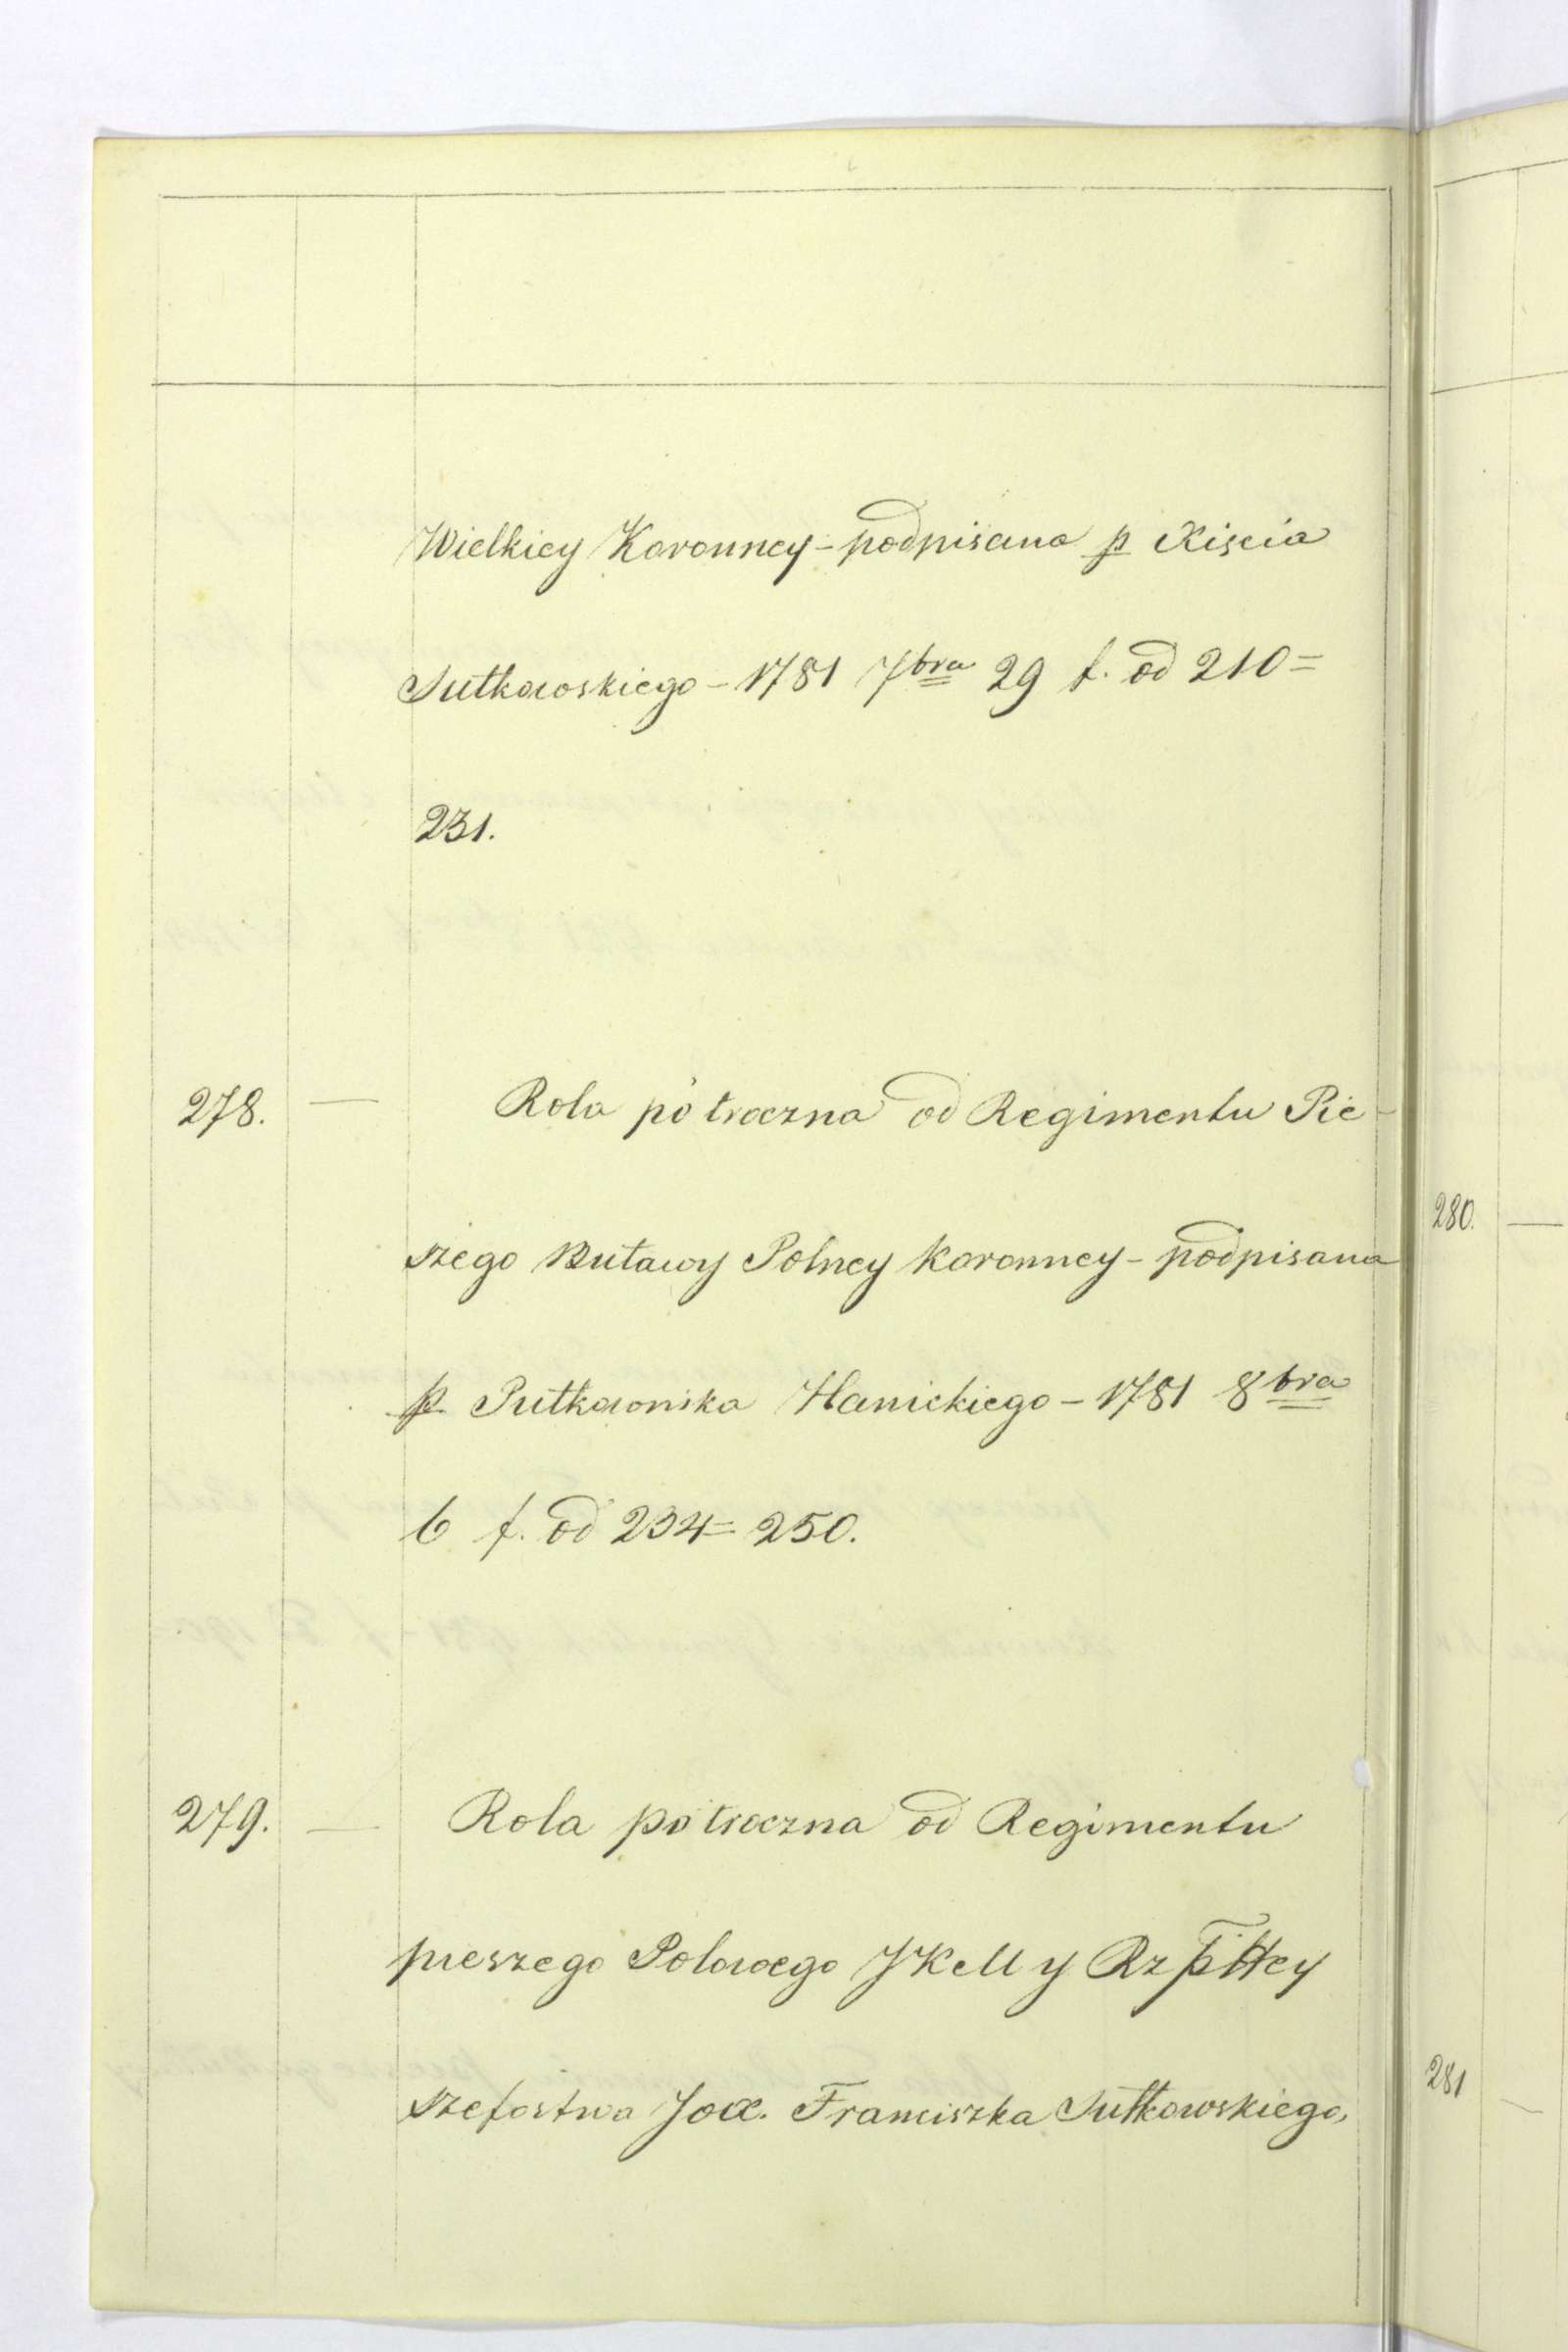 Wielkiey Koronney - podpisana p Xięcia
Sułkowskiego - 1781 7bra 29 f. od 210 =
231.
278. — Rola pół roczna od Regimentu Pie-
szego Buławy Polney Koronney - podpisana
p Pułkownika Hanickiego - 1781 8bra
6 f. od 234 = 250.
279. — Rola pół roczna od Regimentu
pieszego Polowego JKM y Rzpttey
szefostwa Jox. Franciszka Sułkowskiego,
280. —
281